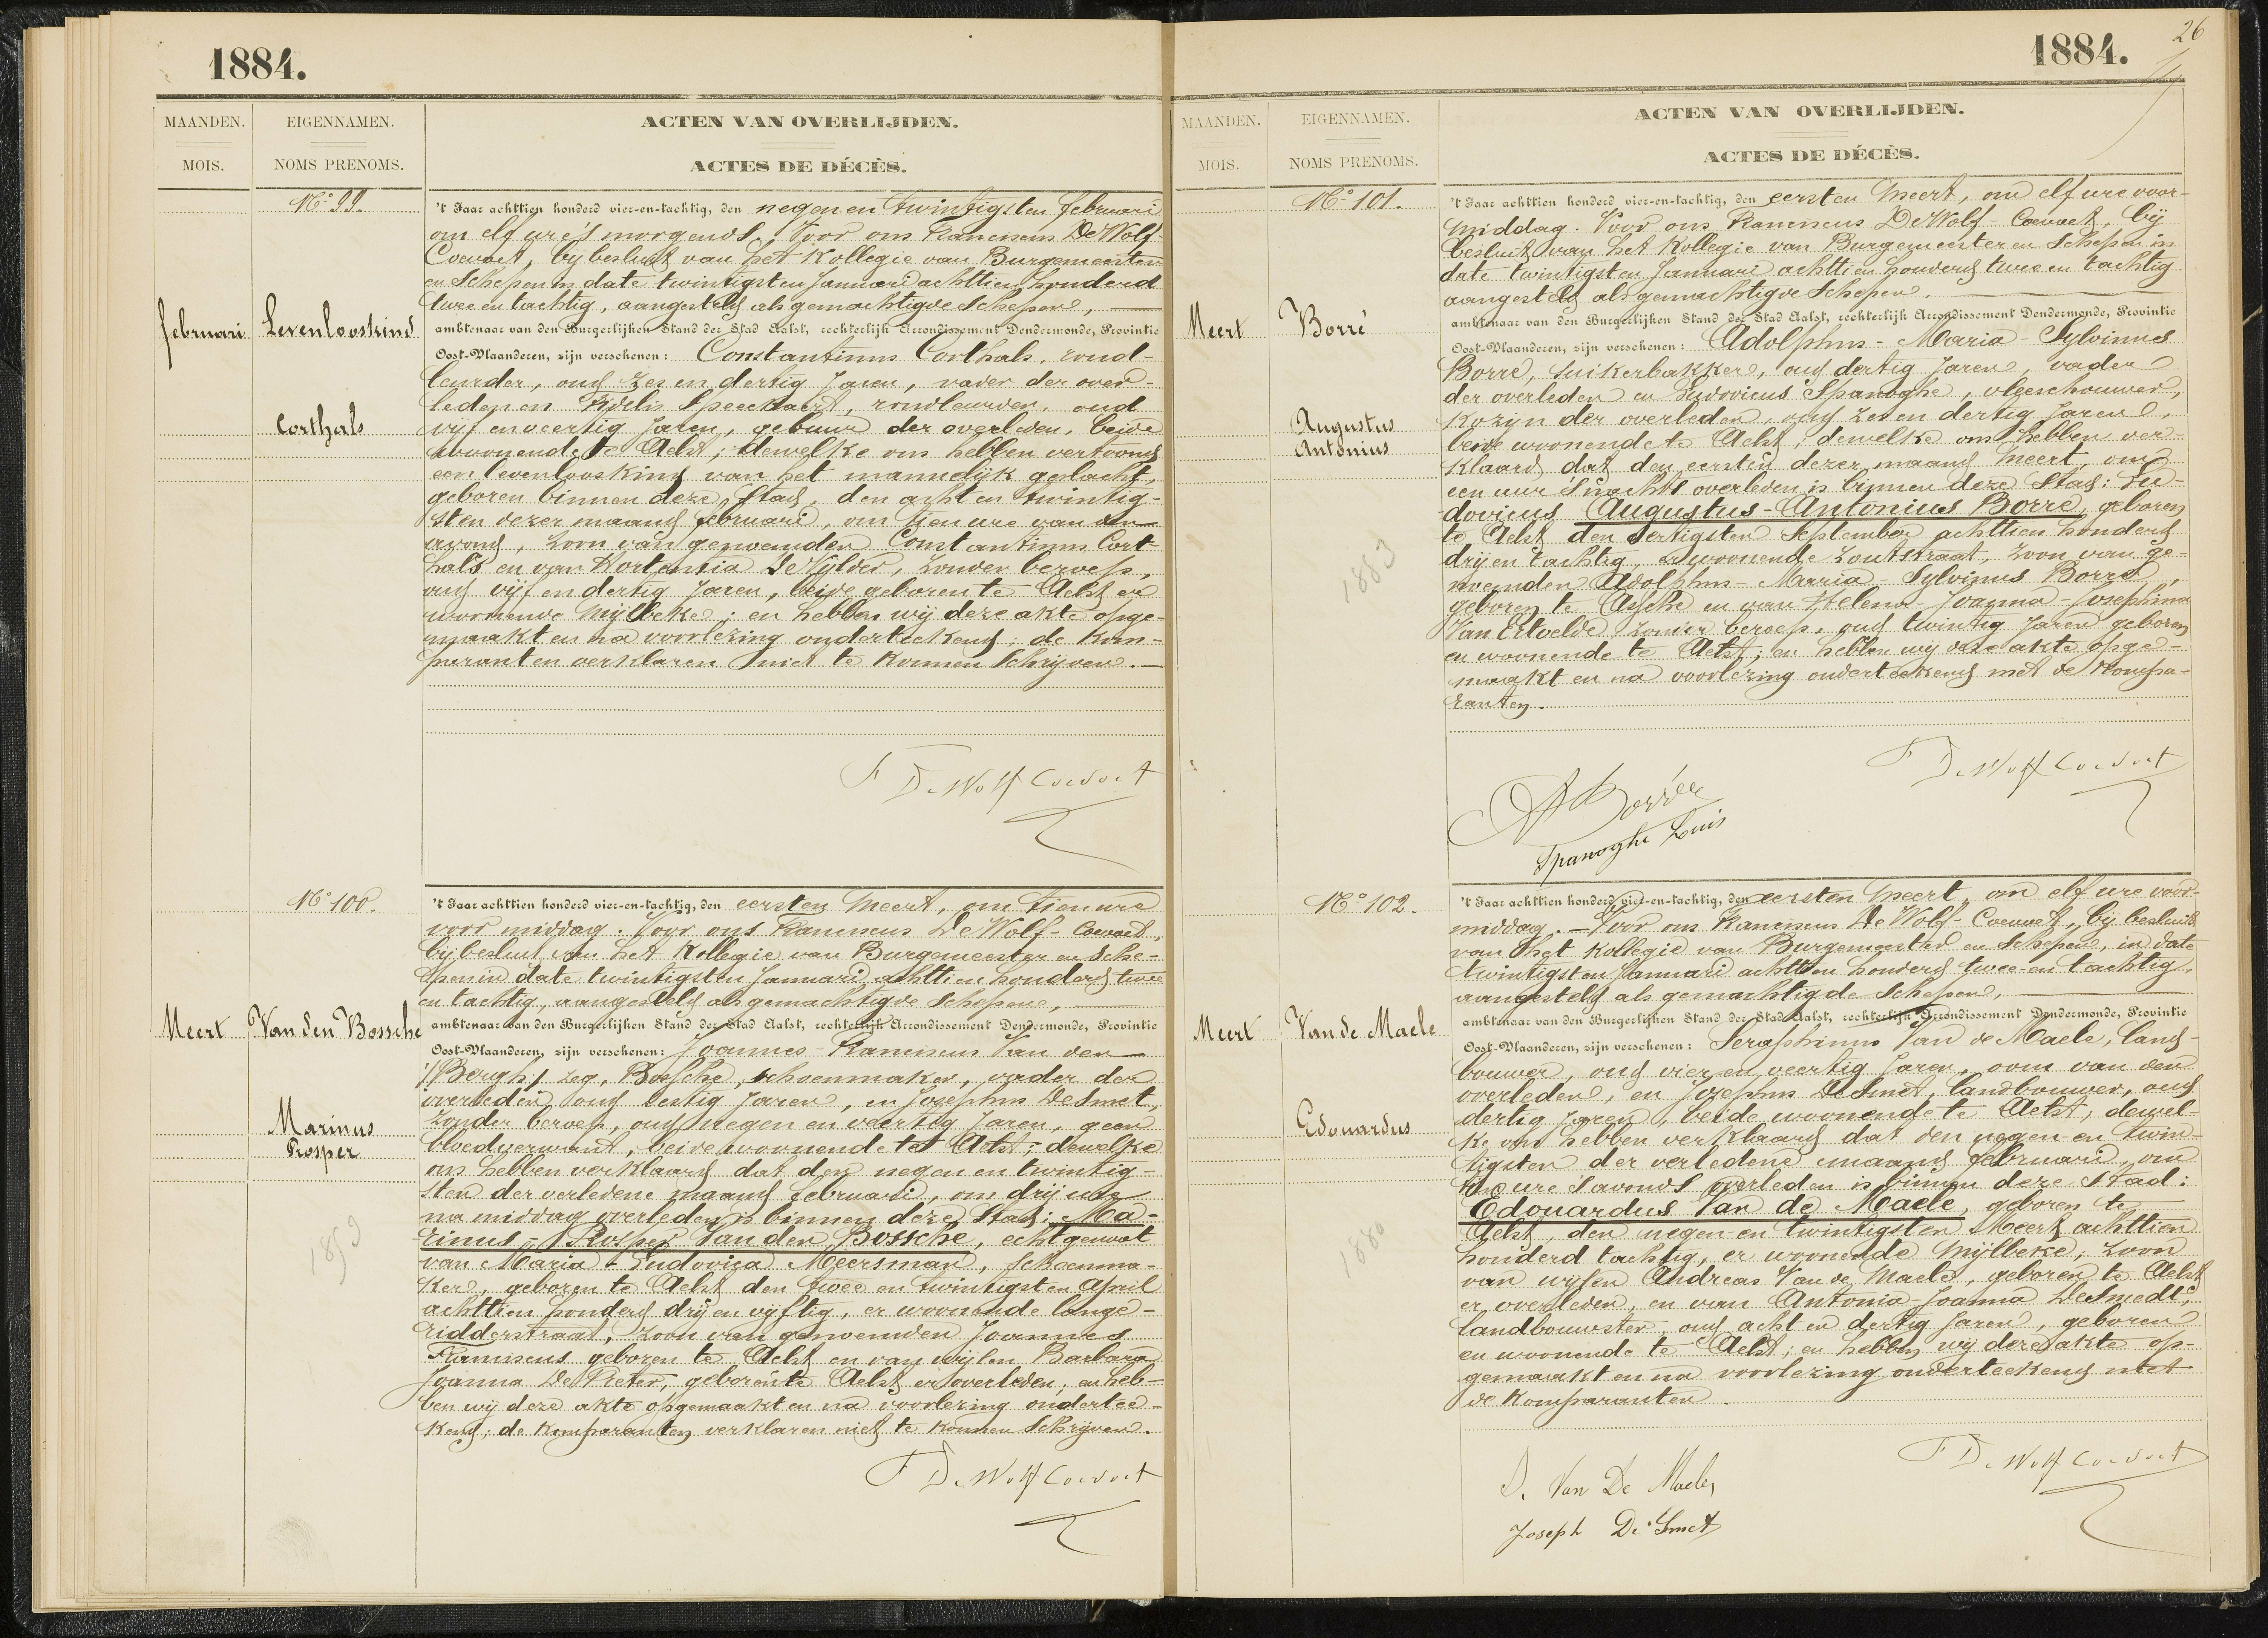 1884.
MAANDEN.
MOIS.
EIGENNAMEN.
NOMS PRENOMS.
ACTEN VAN OVERLIJDEN.
ACTES DE DÉCÈS.
No 99.
februari
Levenlooskind
Corthals
't Jaar achttien honderd vier-en-tachtig, den negen en twintigsten februari
om elf ure 's morgends. Voor ons Franciscus De Wolf-
Coevoet, bij besluit van het Kollegie van Burgemeester
en Schepen in date twintigsten Januari achttien honderd
twee en tachtig, aangesteld als gemachtigde Schepen,
ambtenaar van den Burgerlijken Stand der Stad Aalst, rechterlijk Arrondissement Dendermonde, Provintie
Oost-Vlaanderen, zijn verschenen: Constantinus Corthals, rond-
leurder, oud zes en dertig Jaren, vader der over-
leden en Fidelis Speeckaert, rondleurder, oud
vijf en veertig Jaren, gebuur der overleden, beide
woonende te Aelst; dewelke ons hebben vertoond
een levenlooskind van het mannelijk geslacht,
geboren binnen deze Stad, den acht en twintig-
sten dezer maand februari, om tien ure van den
avond, zoon van genoemden Constantinus Cort-
hals en van Hortensia De Vylder, zonder beroep,
oud vijf en dertig Jaren, beide geboren te Aelst en
woonende Mijlbeke; en hebben wij deze akte opge-
maakt en na voorlezing onderteekend; de kom-
paranten verklaren niet te konnen Schrijven.
F De Wolf Coevoet
No 100.
Meert
Van den Bossche
Marinus
Prosper
1853
't Jaar achttien honderd vier-en-tachtig, den eersten Meert, om tien ure
voor middag. Voor ons Franciscus De Wolf-Coevoet,
bij besluit van het Kollegie van Burgemeester en Sche-
pen in date twintigsten Januari achttien honderd twee
en tachtig, aangesteld als gemachtigde Schepen,
ambtenaar van den Burgerlijken Stand der Stad Aalst, rechterlijk Arrondissement Dendermonde, Provintie
Oost-Vlaanderen, zijn verschenen: Joannes-Franciscus Van den
/Bergh/ zeg, Bossche, schoenmaker, vader der
overleden, oud zestig Jaren, en Josephus De Smet,
zonder beroep, oud negen en veertig Jaren, geen
bloedverwant, beide woonende te Aelst; dewelke
ons hebben verklaard dat den negen en twintig-
sten der verledene maand februari, om drij ure
na middag overleden is binnen deze Stad: Ma-
rinus-Prosper Van den Bossche, echtgenoot
van Maria-Ludovica Meersman, schoenma-
ker, geboren te Aelst den twee en twintigsten April
achttien honderd drij en vijftig, er woonende lange-
ridderstraat, zoon van genoemden Joannes
Franciscus geboren te Aelst en van wijlen Barbara
Joanna De Preter, geboren te Aelst er overleden; en heb-
ben wij deze akte opgemaakt en na voorlezing ondertee-
kend; de komparanten verklaren niet te konnen Schrijven.
F De Wolf Coevoet
26
1884.
MAANDEN.
MOIS.
EIGENNAMEN.
NOMS PRENOMS.
ACTEN VAN OVERLIJDEN.
ACTES DE DÉCÈS.
No 101.
Meert
Borré
Augustus
Antonius
1883
't Jaar achttien honderd vier-en-tachtig, den eersten Meert, om elf ure voor-
middag. Voor ons Franciscus De Wolf-Coevoet, bij
besluit van het Kollegie van Burgemeester en Schepen in
date twintigsten Januari achttien honderd twee en tachtig
aangesteld als gemachtigde Schepen.
ambtenaar van den Burgerlijken Stand der Stad Aalst, rechterlijk Arrondissement Dendermonde, Provintie
Oost-Vlaanderen, zijn verschenen: Adolphus-Maria-Sylvinus
Borré, suikerbakker, oud dertig Jaren, vader
der overleden en Ludovicus Spanoghe, vleeschouwer,
kozijn der overleden, oud zes en dertig Jaren,
beide woonende te Aelst; dewelke ons hebben ver-
klaard dat den eersten dezer maand Meert, om
een uur 's nachts overleden is binnen deze Stad: Lu-
dovicus Augustus-Antonius Borré, geboren
te Aelst den dertigsten September achttien honderd
drij en tachtig, er woonende Zoutstraat, zoon van ge-
noemden Adolphus-Maria-Sylvinus Borré,
geboren te Assche en van Helena-Joanna-Josephina
Van Ertvelde, zonder beroep, oud twintig Jaren geboren
en woonende te Aelst; en hebben wij deze akte opge-
maakt en na voorlezing onderteekend met de kompa-
ranten.
F De Wolf Coevoet
A Borrée
Spanoghe Louis
No 102.
Meert
Van de Maele
Edouardus
1880
't Jaar achttien honderd vier-en-tachtig, den eersten Meert, om elf ure voor-
middag. Voor ons Franciscus De Wolf-Coevoet, bij besluit
van het Kollegie van Burgemeester en Schepen, in date
twintigsten Januari achttien honderd twee-en tachtig,
aangesteld als gemachtigde Schepen,
ambtenaar van den Burgerlijken Stand der Stad Aalst, rechterlijk Arrondissement Dendermonde, Provintie
Oost-Vlaanderen, zijn verschenen: Seraphinus Van de Maele, land-
bouwer, oud vier en veertig Jaren, oom van den
overleden, en Josephus De Smet, landbouwer, oud
dertig Jaren, beide woonende te Aelst, dewel-
ke ons hebben verklaard dat den negen en twin-
tigsten der verledene maand februari, om
ure 's avonds overleden is binnen deze Stad:
Edouardus Van de Maele, geboren te
Aelst, den negen en twintigsten Meert achttien
honderd tachtig, er woonende Mijlbeke, zoon
van wijlen Andreas Van de Maele, geboren te Aelst
er overleden, en van Antonia-Joanna De Smedt,
landbouwster, oud acht en dertig Jaren, geboren
en woonende te Aelst; en hebben wij deze akte op-
gemaakt en na voorlezing onderteekend met
de komparanten.
F De Wolf Coevoet
S. Van De Maele
Joseph De Smet